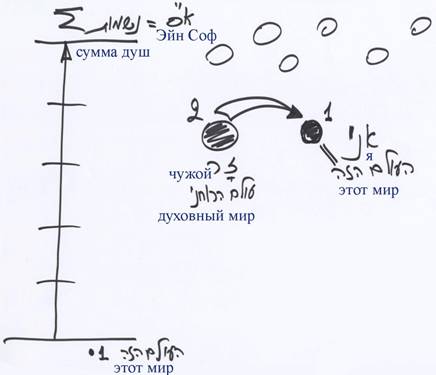 ∑ נשמות = א"ס Эйн Соф
сумма душ
2
1
אני
я
זר
чужой
העולם הזה
этот мир
עולם הרוחני
духовный мир
העולם הזה .1
этот мир